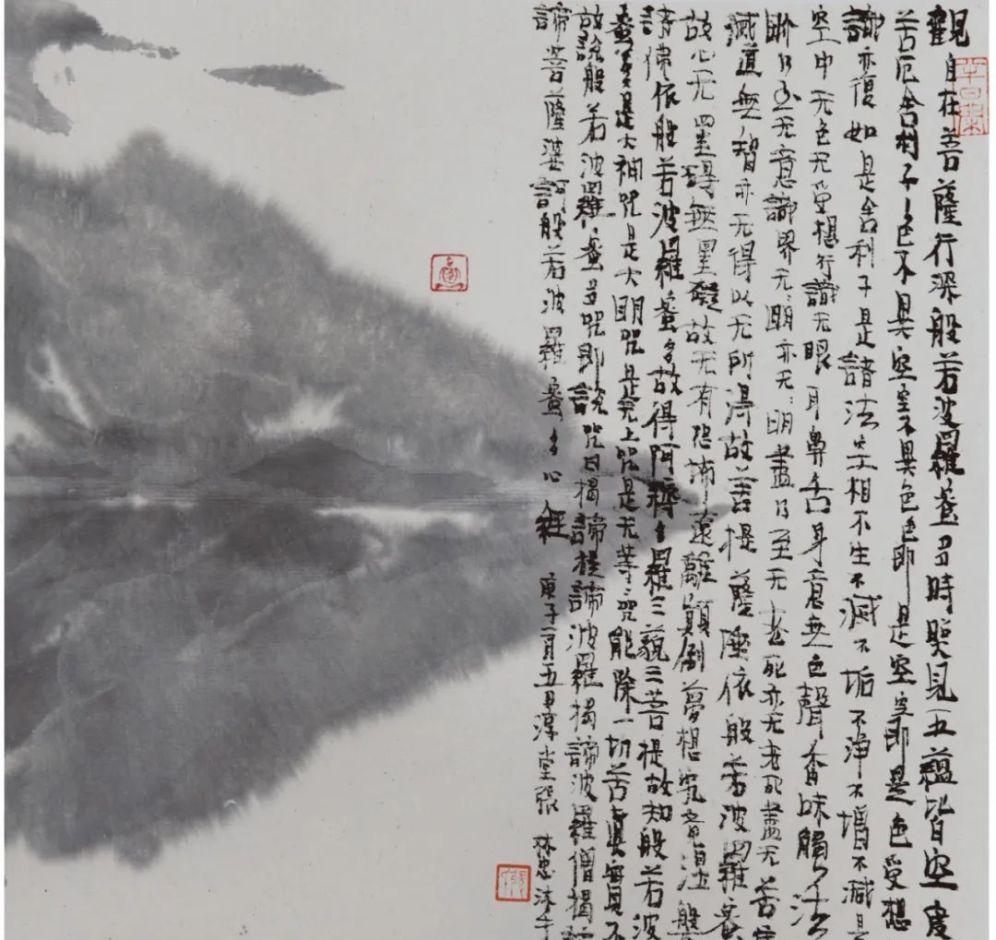 觀自在菩薩行深般若波羅蜜多時照見五蘊皆空度
苦厄舍利子色不異空空不異色色即是空空即是色受想
識亦復如是舍利子是諸法空相不生不滅不垢不淨不增不減是
空中无色无受想行識无眼耳鼻舌身意無色聲香味觸法
界乃至无意識界无无明亦无无明盡乃至无老死亦无老死盡无苦集
滅道無智亦无得以无所得故菩提薩埵依般若波羅蜜
故心无罣礙無罣礙故无有恐怖遠離顛倒夢想究竟涅般
諸佛依般若波羅蜜多故得阿耨多羅三藐三菩提故知般若波
蜜多是大神咒是大明咒是无上咒是无等等咒能除一切苦真實不
故說般若波羅蜜多咒即說咒曰揭諦揭諦波羅揭諦波羅僧揭
諦菩薩婆訶般若波羅蜜多心經 庚子二月五日淳堂張林忠沐手